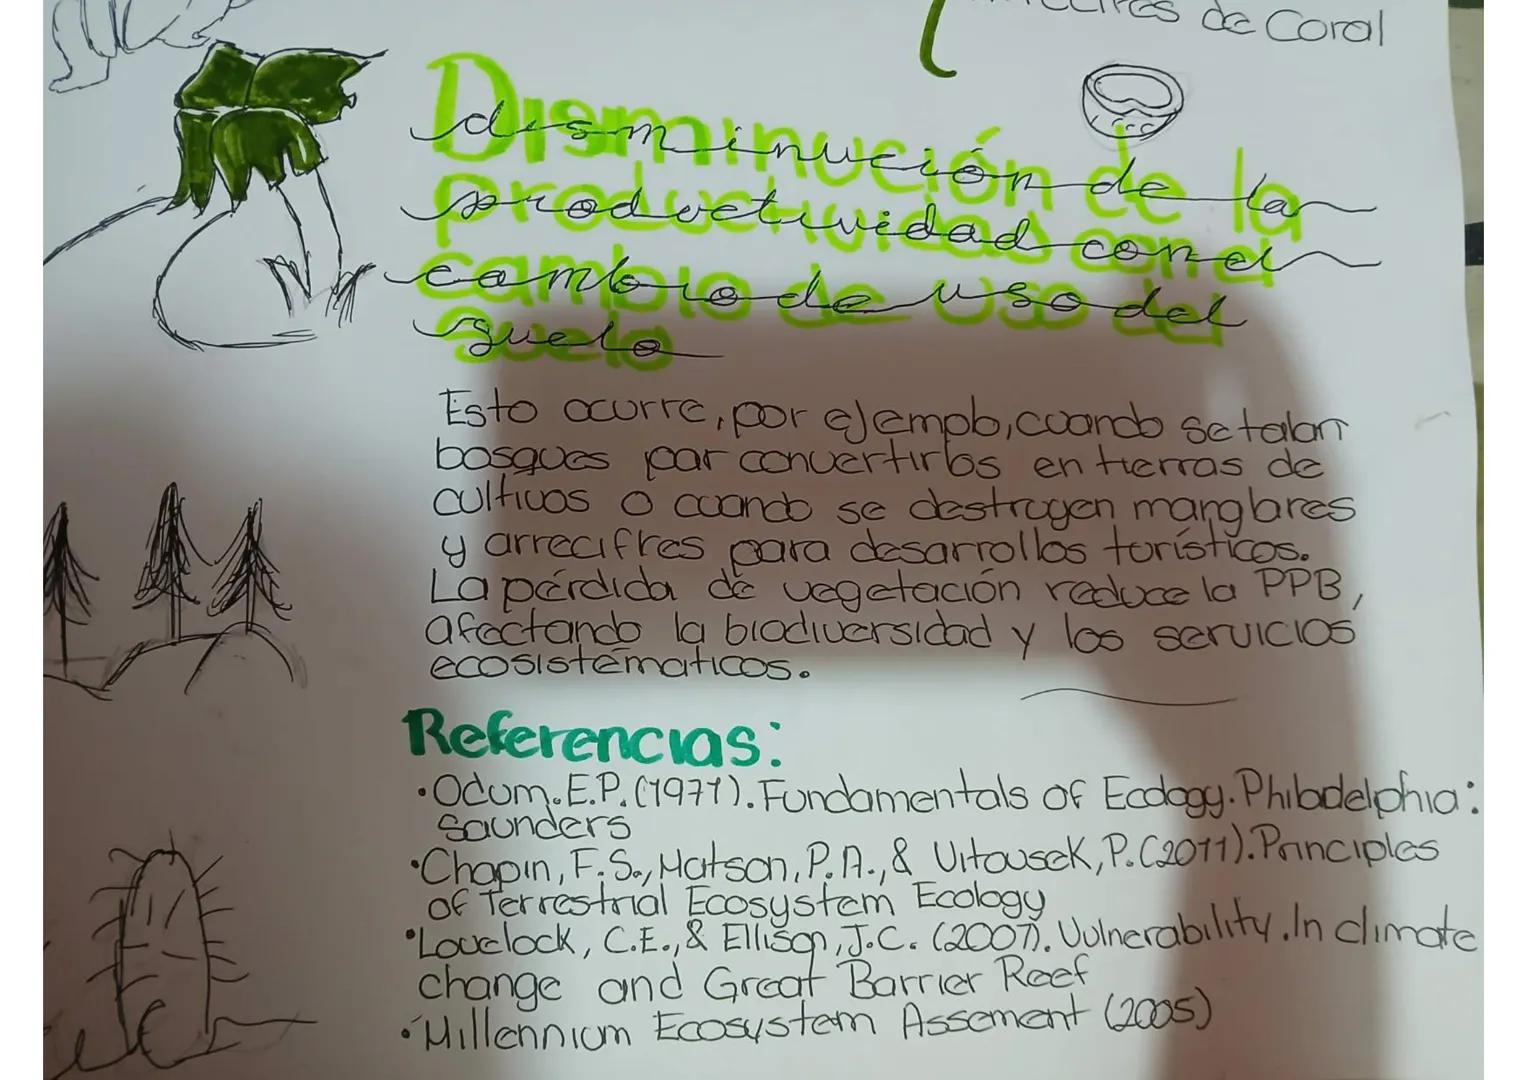 de Coral
Disminución de la
productividad con el
cambio de uso del
suelo
Esto ocurre, por ejemplo, cuando se talan
bosques par convertirlos en tierras de
cultivos o cuando se destruyen manglares
y arrecifres para desarrollos turísticos.
La pérdida de vegetación reduce la PPB,
afectando la biodiversidad y los servicios
ecosistematicos.
Referencias:
•Odum.E.P.(1971).Fundamentals of Ecology.Philadelphia:
Saunders
•Chapin, F.S., Matson, P.A., & Vitousek, P.(2011).Principles
of Terrestrial Ecosystem Ecology
•Lovelock, C.E., & Ellison, J.C. (2007). Vulnerability.In climate
change and Great Barrier Reef
•Millennium Ecosystem Assement (2005)